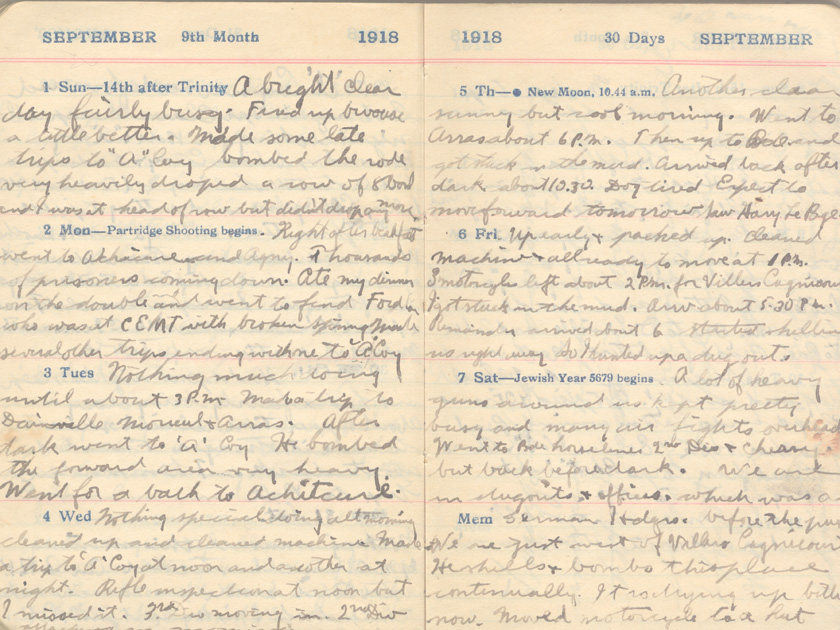 SEPTEMBER 9th Month 1918
1 Sun—14th after Trinity A bright clear
day fairly busy. Fixed up
a little better. Made some late
trips to "A" Coy bombed the rode
very heavily droped a row of 8
and I was at head of row but didn't drop any more
2 Mon—Partridge Shooting begins. Right after breakfast
went to and Agny. Thousands
of prisoners coming down. Ate my dinner
on the double and went to find Ford
who was at CEMT with broken spring Made
several other trips ending with one to "A" Coy
3 Tues Nothing much doing
until about 3 P.M. Made a trip to
Dainville & Arras. After
dark went to 'A' Coy He bombed
the forward area very heavy.
Went for a bath to
4 Wed Nothing special doing all morning
cleaned up and cleaned machine Made
a trip to 'A' Coy at noon and another at
night. Rifle inspection at noon but
I missed it. 3rd Div moving in. 2nd Div
1918 30 Days SEPTEMBER
5 Th—● New Moon, 10.44 a.m. Another clear
sunny but cool morning. Went to
Arras about 6 P.M. Then up to and
got stuck in the mud. Arrived back after
dark about 10.30. Dog tired Expect to
move forward tomorrow Saw Harry
6 Fri. Up early & packed up. cleaned
machine & all ready to move at 1 P.M.
3 motorcycles left about 2 P.M. for Villers
I got stuck in the mud. Arriv about 5.30 P.M.
Remainder arrived about 6 started shelling
us right away So I hunted up a dug out.
7 Sat—Jewish Year 5679 begins. A lot of heavy
guns around us kept pretty
busy and many air fights overhead
Went to horselines 2nd Div &
but back before dark. We are
in dugouts & offices. which was a
Mem German Hdqrs. before the
We are just west of Villers
He shells & bombs this place
continually. It is drying up
now. Moved motorcycle to a hut